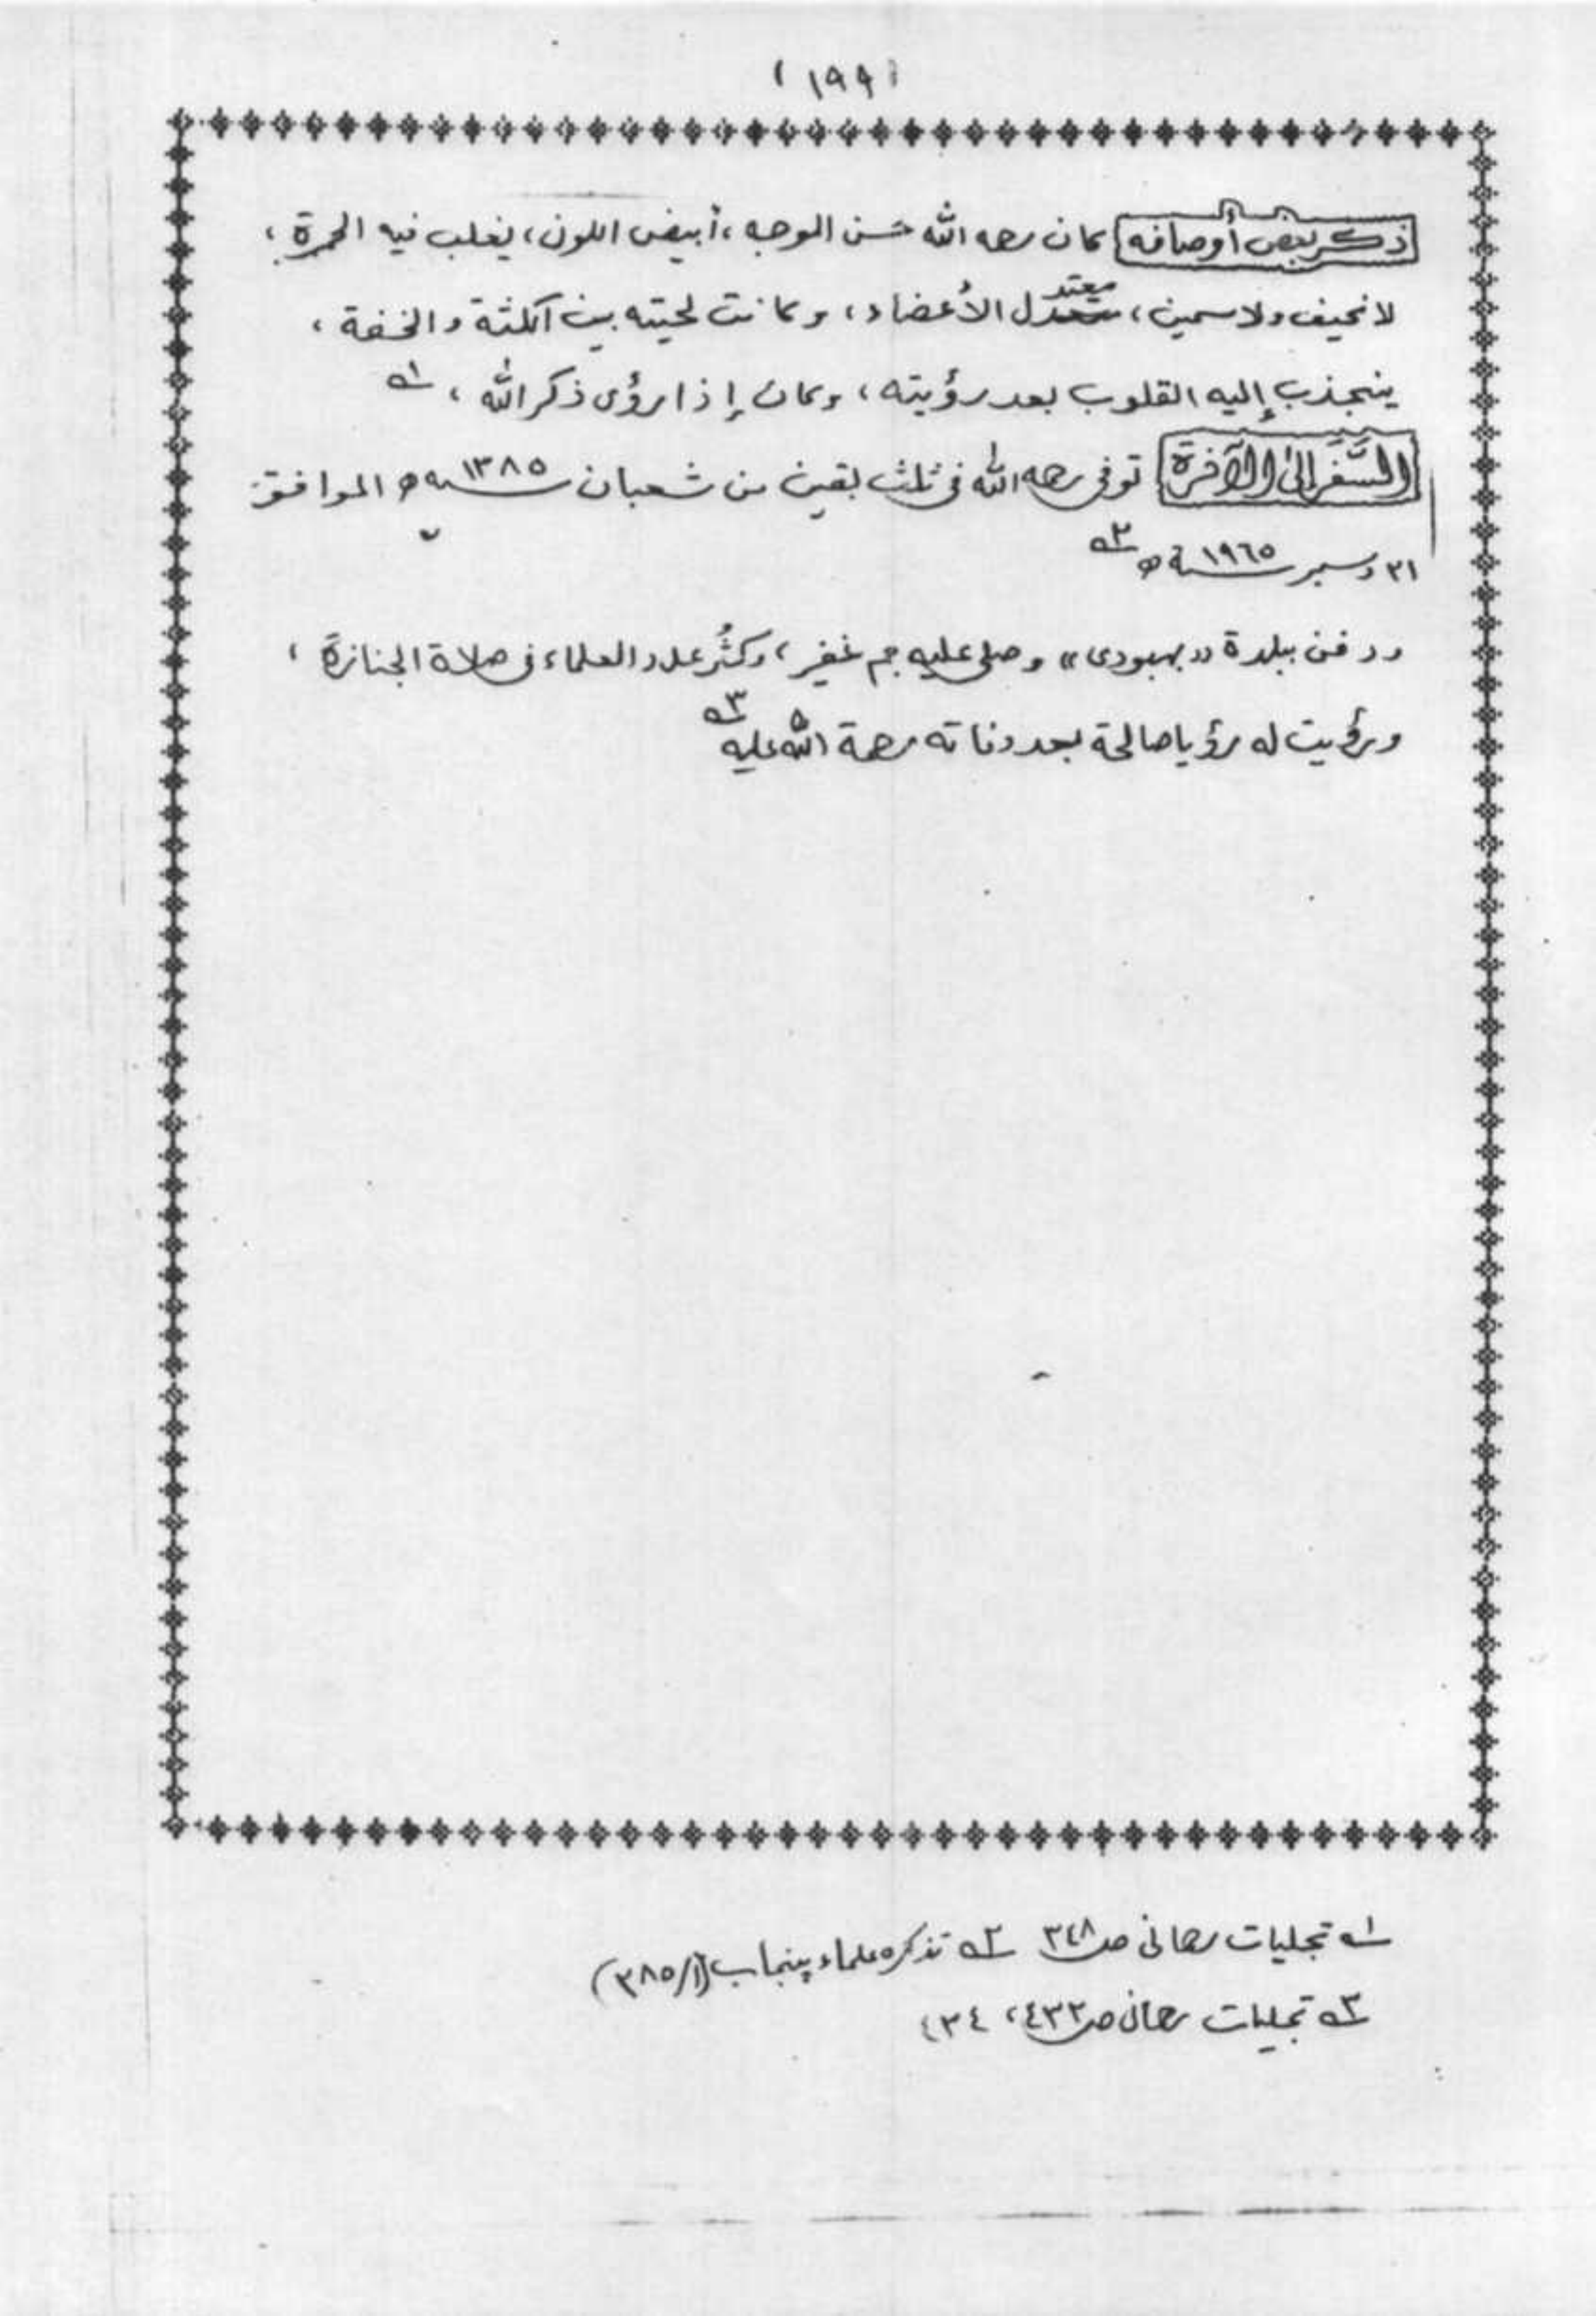 (١٩٩)
ذكر بعض أوصافه كان رحمه الله حسن الوجه، أبيض اللون، يغلب فيه الحمرة،
لا نحيف ولا سمين، معتدل الأعضاء، وكانت لحيته بين الكثة والخفة،
ينجذب إليه القلوب بعد رؤيته، وكان إذا رؤى ذكر الله، ١ه
السَّفَر إلى الآخرة توفى رحمه الله فى ثلث بقين من شعبان سنه ١٣٨٥ه الموافق
٢١ دسمبر سنة ١٩٦٥ ٢ه
ودفن ببلدة «بهبودى» وصلى عليه جم غفير، وكثُر عدد العلماء فى صلاة الجنازة،
ورؤيت له رؤيا صالحة بعد وفاته رحمة الله عليه ٣ه
١ه تجليات رحمانى ص ٣٤٨ ٢ه تذكره علماء پنجاب (١/٣٨٥)
٣ه تجليات رحمانى ص ٤٣٢، ٤٣٤